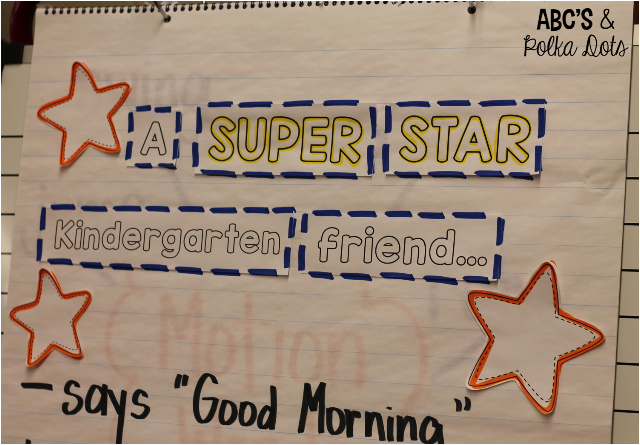 ABC'S &
Polka Dots
A SUPER STAR
Kindergarten friend...
(Motion)
- says "Good Morning"